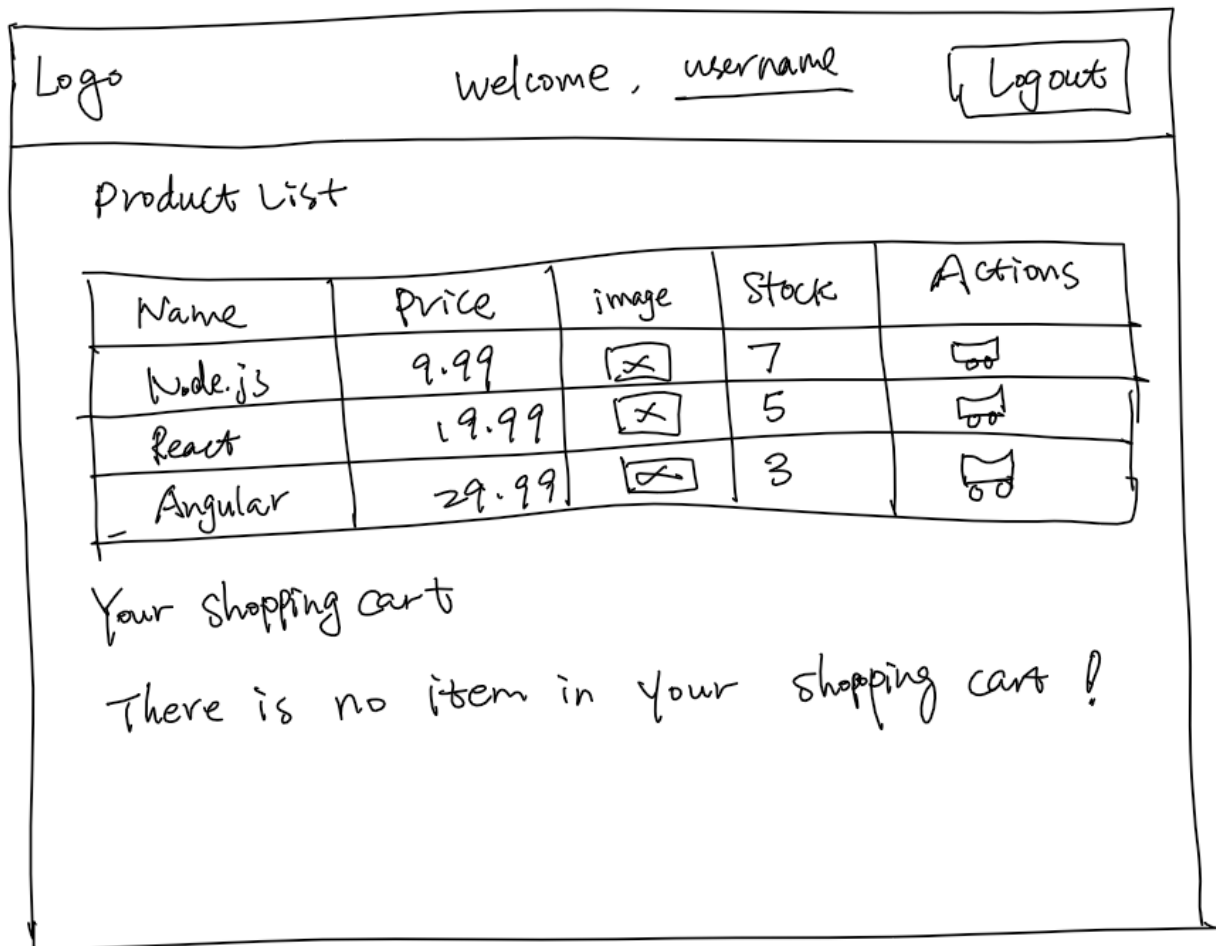 Logo welcome, username Logout
Product List
Name Price image Stock Actions
Node.js 9.99 7
React 19.99 5
Angular 29.99 3
Your shopping cart
There is no item in your shopping cart !